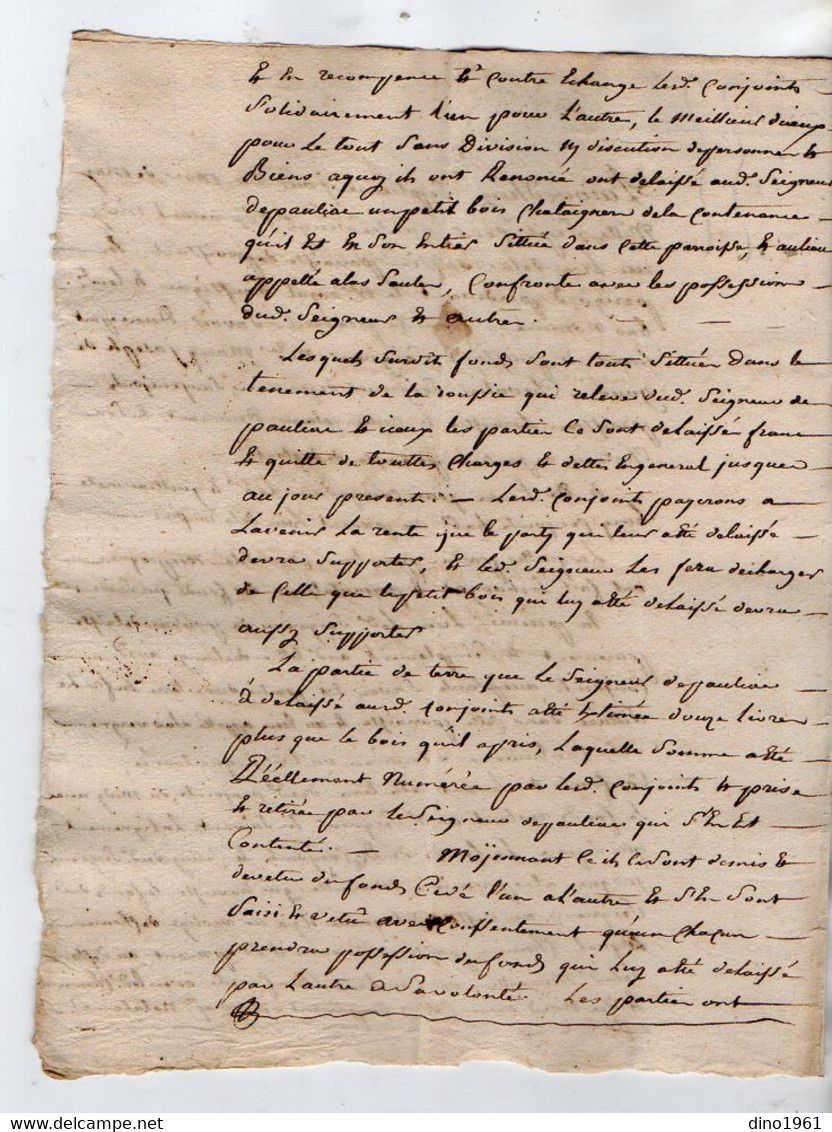 Et En recompence Et Contre Echange Lesd. Conjoints
Solidairement l'un pour l'autre, le Meilleur d'ieux
pour Le tout Sans Division ny discution de personnes Et
Biens a quoy ils ont Renoncé ont delaissé aud. Seigneur
de pauliac un petit bois Chataigner de la Contenance
qu'il Et En Son Entier Sittué dans Cette parroisse, Et au lieu
appellé a las Saules, Confronte avec les possession
dud. Seigneur Et autres.
Lesquels Surdits fonds Sont touts Sittués Dans le
tenement de la roussie qui releve dud. Seigneur de
pauliac Et iceux les parties Ce Sont delaissé franc
Et quitte de touttes Charges Et dettes En general jusques
au jour present. Lesd. Conjoints payerons a
L'avenir La rente que le party qui leur a été delaissé
devra Supporter, Et led. Seigneur Les fera decharger
de Celle que le petit bois qui luy a été delaissé devra
aussy Supporter
La partie de terre que Le Seigneur de pauliac
à delaissé aux d. Conjoints a été Estimée douze Livres
plus que le bois qu'il a pris, Laquelle Somme a été
Réellement Numérée par Lesd. Conjoints Et prise
Et retirée par Le Seigneur de pauliac qui S'En Et
Contenté. Moÿennant Ce ils Ce Sont demis Et
devetu du fonds Cedé l'un a l'autre Et S'En Sont
Saisi Et vetu avec Conssentement qu'un Chacun
prendra possession du fonds qui Luy a été delaissé
par L'autre a Sa volonté. Les parties ont
dino1961